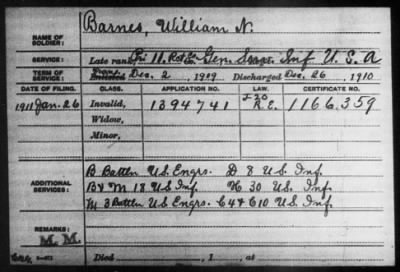 NAME OF SOLDIER: Barnes, William N.
SERVICE: Late rank, Pvt 11. Rct Co. Gen. Serv. Inf U. S. A
TERM OF SERVICE: Enlisted Dec. 2, 1909 Discharged Dec. 26, 1910
DATE OF FILING. CLASS. APPLICATION NO. LAW. CERTIFICATE NO.
1911 Jan. 26 Invalid, 1394741 R.E. 1166.359
Widow,
Minor,
ADDITIONAL SERVICES: B Battln U.S. Engrs. D 8 U.S. Inf.
B & M 18 U.S. Inf. H 30 U.S. Inf.
M 3 Battln U.S. Engrs. C4 & C10 U.S. Inf.
REMARKS: M. M.
Died , 1 , at